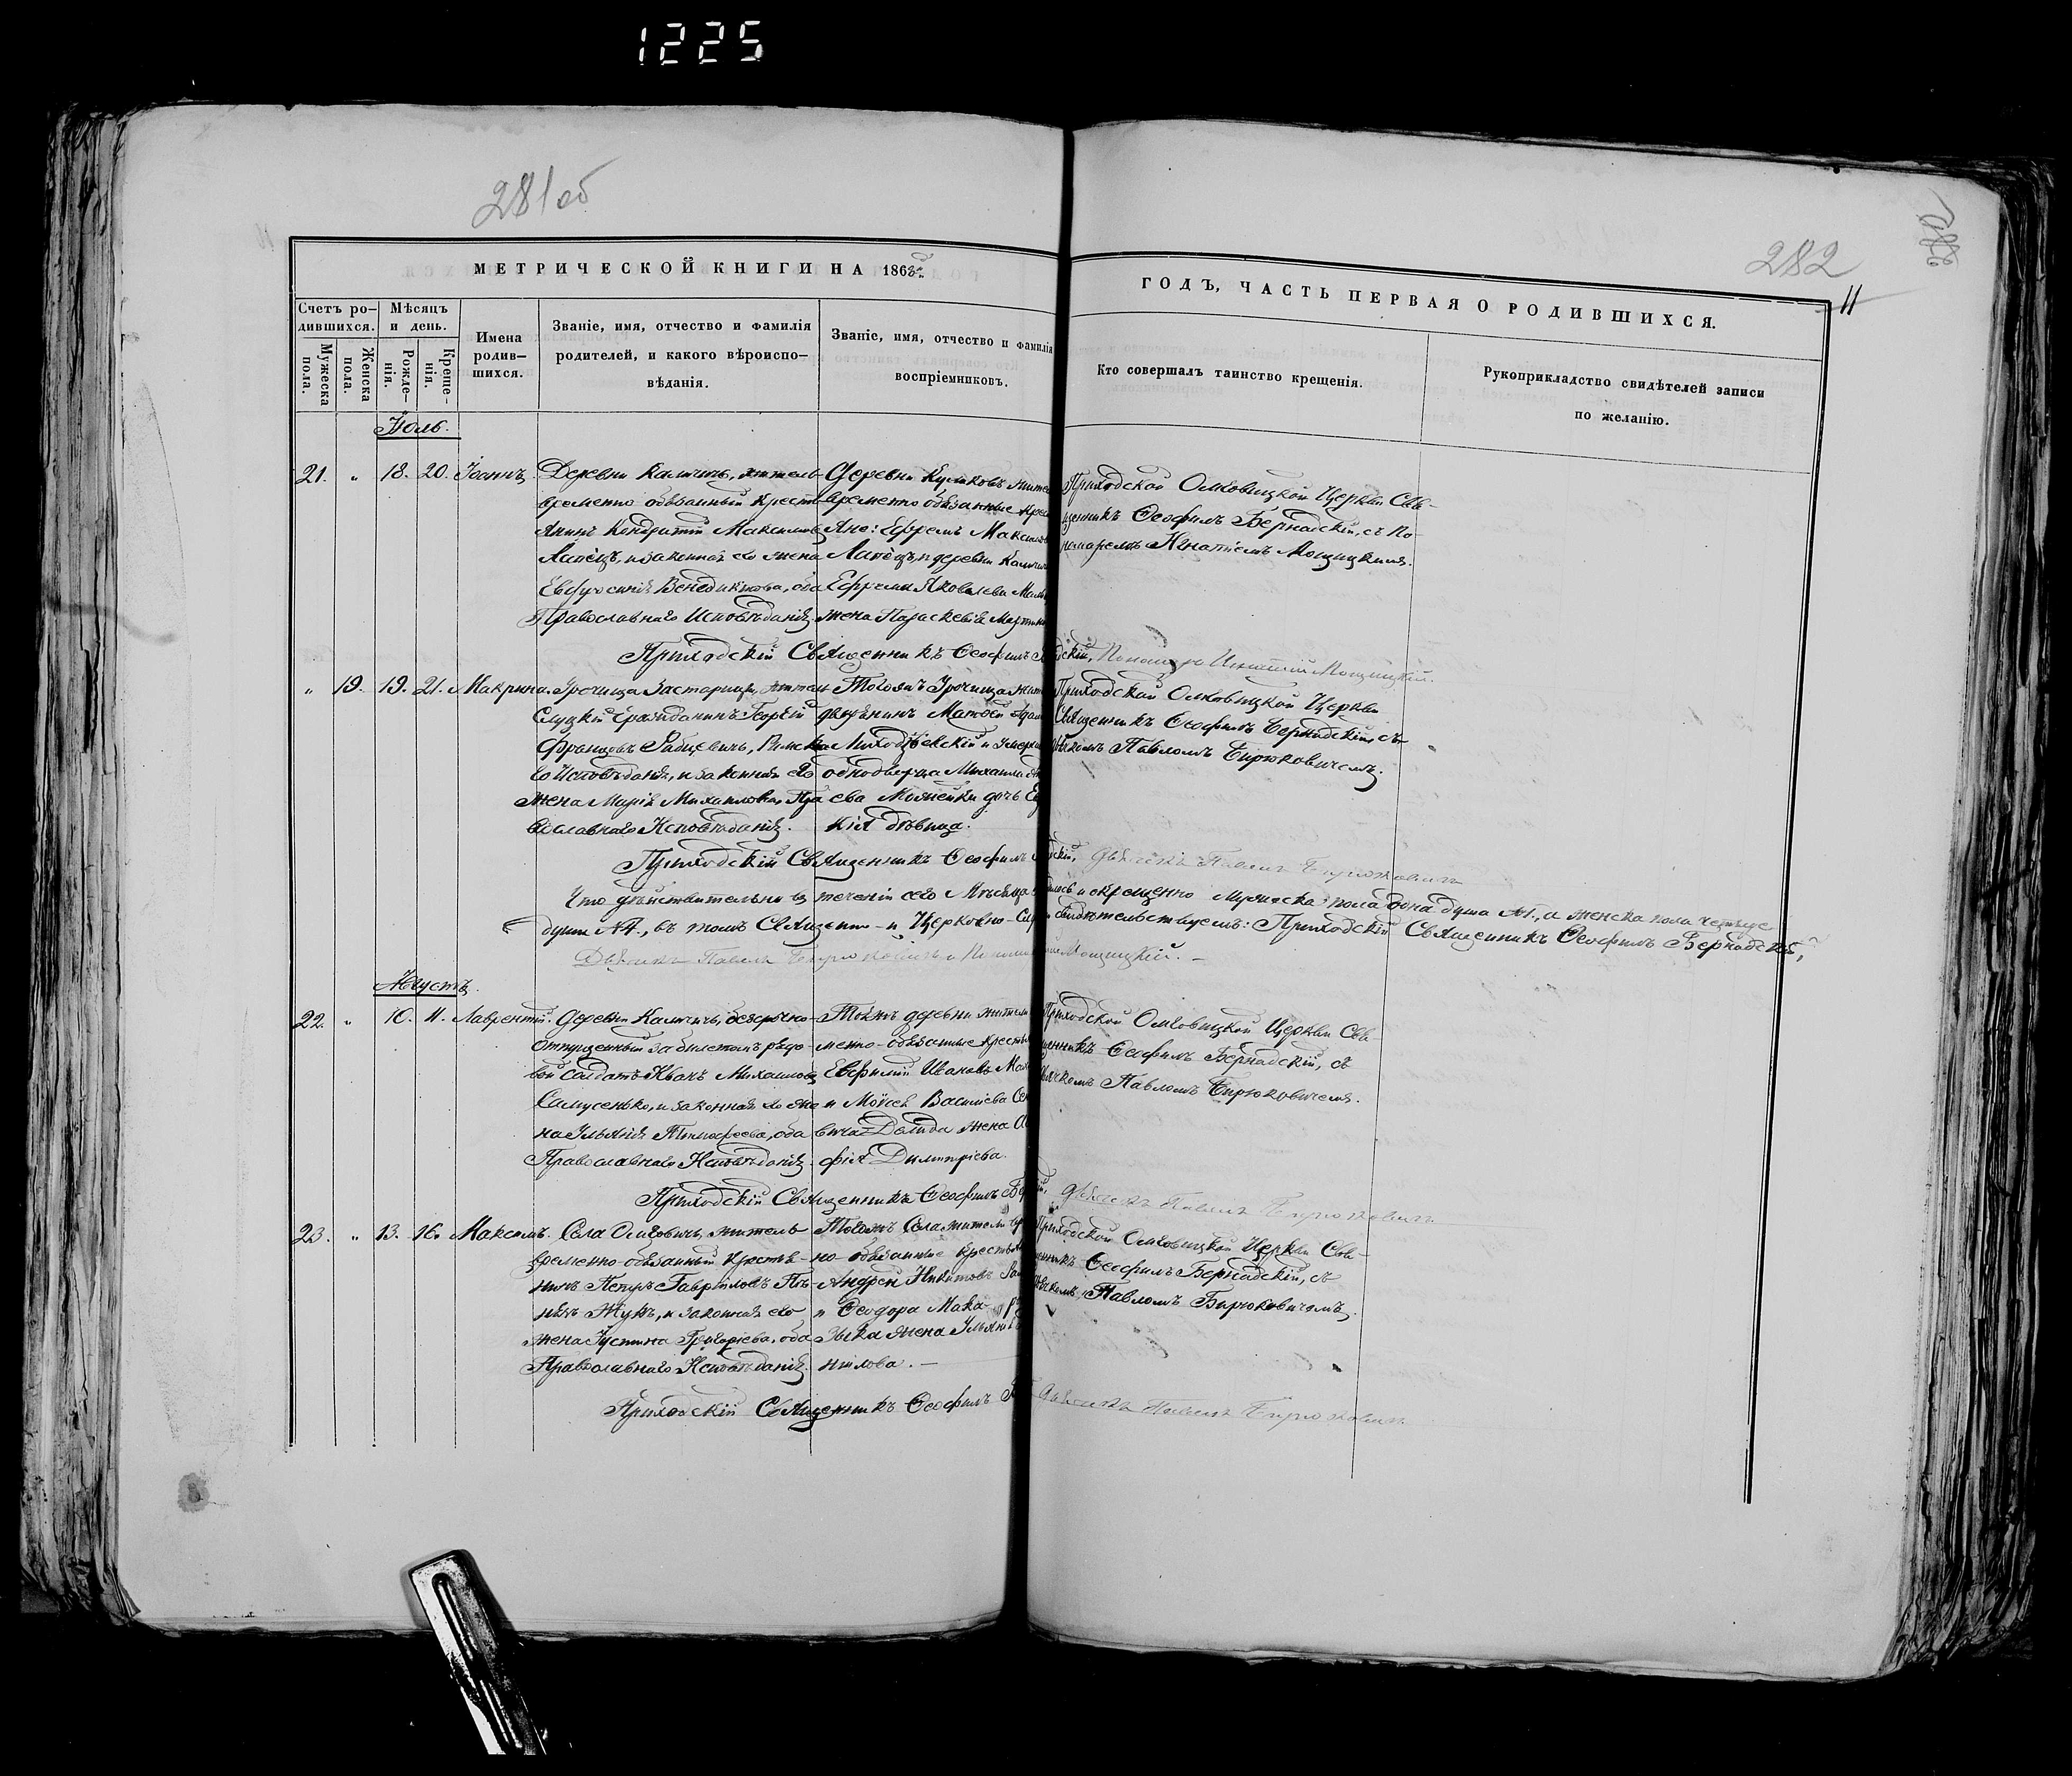 1225
281 об
282
11
МЕТРИЧЕСКОЙ КНИГИ НА 1863й
ГОДЪ, ЧАСТЬ ПЕРВАЯ О РОДИВШИХСЯ.
Счетъ ро-
дившихся.
Мужеска
пола.
Женска
пола.
Мѣсяцъ
и день.
Рожде-
нія.
Креще-
нія.
Имена
родив-
шихся.
Званіе, имя, отчество и фамилія
родителей, и какого вѣроиспо-
вѣданія.
Званіе, имя, отчество и фамилія
воспріемниковъ.
Кто совершалъ таинство крещенія.
Рукоприкладство свидѣтелей записи
по желанію.
Іюль.
21. " 18. 20. Іоаннъ.
Деревни житель
временно обязанный крестъ
янинъ Кондратій Максимовъ
Лапецъ, и законная его жена
Евфросинія Венедиктова, оба
Православнаго Исповѣданія.
Деревни Куликовъ жите
временно обязанные крес
яне: Ефремъ Максимов
Лапецъ, и деревни
Ефрема Яковлева
жена Параскевія
Приходской Церкви Свя-
щенникъ Ѳеофилъ Бернадскій, съ По-
номаремъ Игнатіемъ Мощицкимъ.
Приходскій Священникъ Ѳеофилъ дскій, Пономарь Игнатій Мощицкій.
" 19. 19. 21. Макрина.
Урочища жит
Слуцкій Гражданинъ Георгій
Францовъ Рабцевичъ, Римска
го Исповѣданія, и законная его
жена Марія Михайлова, Пра
вославнаго Исповѣданія.
Тогожъ Урочища жит
дворянинъ Матвей Адам
и умерш
однодворца Михаила
ева дочь Ев
кія дѣвица.
Приходской Церкви
Священникъ Ѳеофилъ Бернадскій, съ
Дьячкомъ Павломъ Бирюковичемъ.
Приходскій Священникъ Ѳеофилъ дскій, Дьячекъ Павелъ Бирюковичъ
Что дѣйствительно въ теченіи сего Мѣсяца родилось и окрещенно Мужеска пола одна душа №1, а женска пола четыре
души №4, въ томъ Священно- и Церковно-Слу свидѣтельствуемъ: Приходскій Священникъ Ѳеофилъ Бернадскій,
Дьячекъ Павелъ Бирюковичъ и Пономарь Мощицкій.
Августъ.
22. " 10. 11. Лаврентій.
Деревни безсрочно-
отпущенный за билетомъ рядо-
вой солдатъ Иванъ Михайловъ
Самусенько, и законная его же
на Ульянія Тимофеева, оба
Православнаго Исповѣданія.
Тойжъ деревни жители
менно-обязанные крестья
Евфимій Ивановъ
и Моисея Васильева
жена
фія Димитріева.
Приходской Церкви Свя-
щенникъ Ѳеофилъ Бернадскій, съ
Дьячкомъ Павломъ Бирюковичемъ.
Приходскій Священникъ Ѳеофилъ Бе кій, Дьячекъ Павелъ Бирюковичъ
23. " 13. 16. Максимъ.
Села житель
временно-обязанный крестья-
нинъ Петръ Гавриловъ
Жукъ, и законная его
жена Иустина Григорьева, оба
Православнаго Исповѣданія.
Тогожъ Села жители вре
но-обязанные крестья
Андрей Никитовъ
и Ѳеодора
жена Ульянія
нилова. —
Приходской Церкви Свя-
щенникъ Ѳеофилъ Бернадскій, съ
Дьячкомъ Павломъ Бирюковичемъ.
Приходскій Священникъ Ѳеофилъ Дьячекъ Павелъ Бирюковичъ